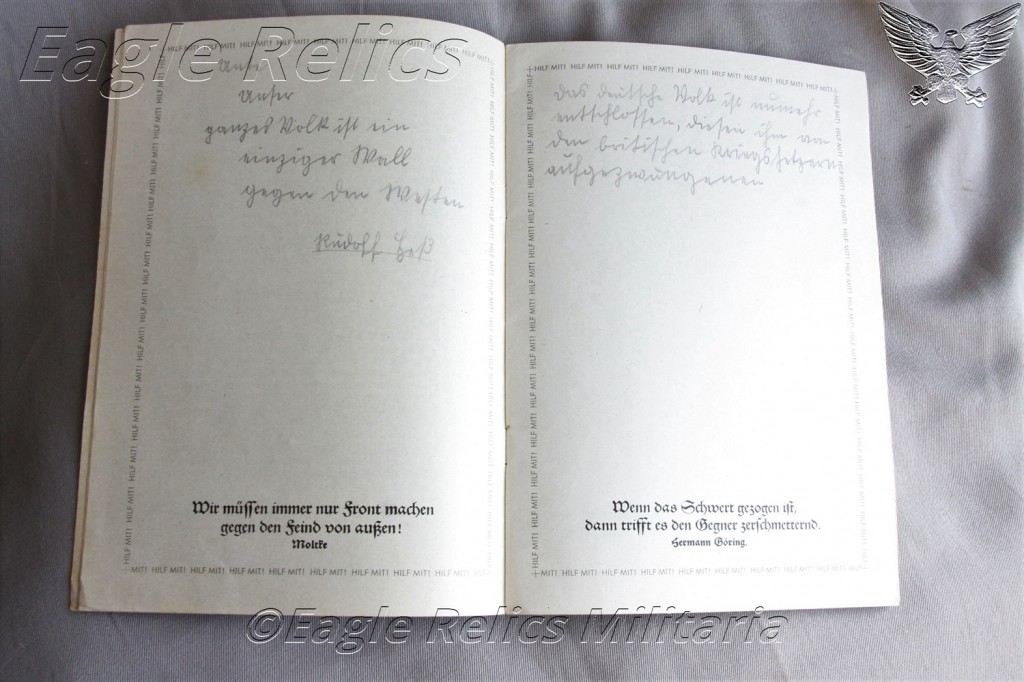 Eagle Relics
HILF MIT! HILF MIT! HILF MIT! HILF MIT! HILF MIT! HILF MIT! HILF MIT!
Unser
Unser
ganzes Volk ist ein
einziger Wall
gegen den Westen
Rudolf Heß
Wir müssen immer nur Front machen
gegen den Feind von außen!
Moltke
MIT! HILF MIT! HILF MIT! HILF MIT! HILF MIT! HILF MIT! HILF MIT! HILF MIT!
HILF MIT! HILF MIT! HILF MIT! HILF MIT! HILF MIT! HILF MIT! HILF MIT! HILF MIT!
das deutsche Volk ist nunmehr
entschlossen, diesen ihm von
den britischen Kriegshetzern
aufgezwungenen
Wenn das Schwert gezogen ist,
dann trifft es den Gegner zerschmetternd.
Hermann Göring.
MIT! HILF MIT! HILF MIT! HILF MIT! HILF MIT! HILF MIT! HILF MIT! HILF MIT!
©Eagle Relics Militaria